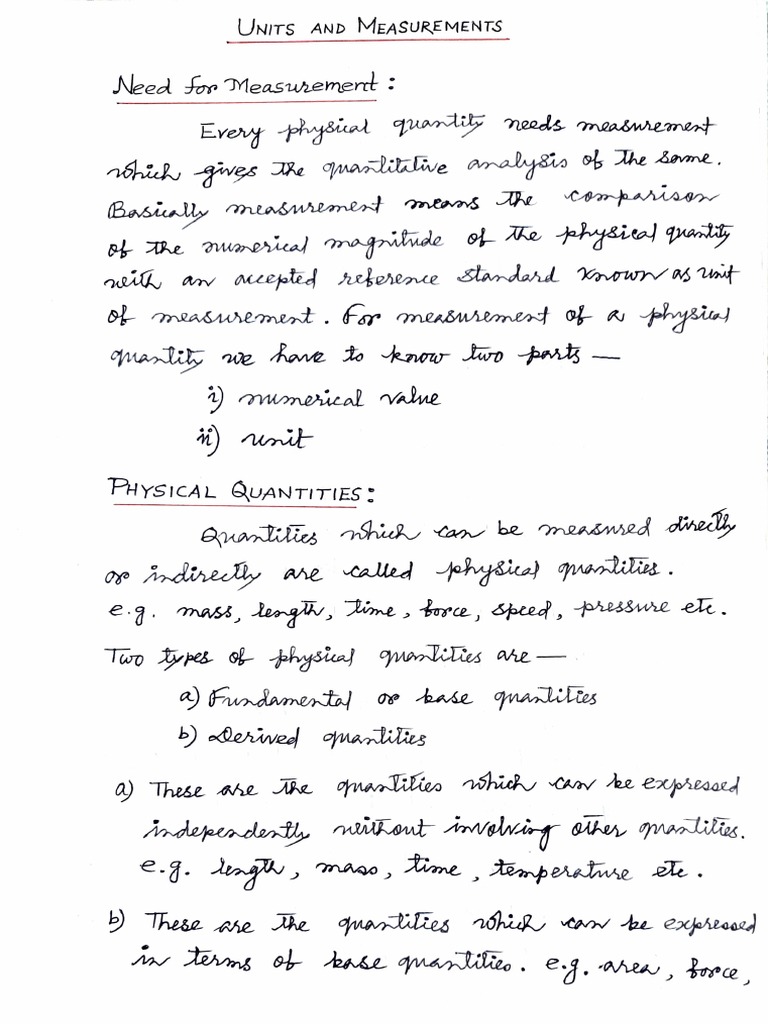 UNITS AND MEASUREMENTS
Need for Measurement:
Every physical quantity needs measurement
which gives the quantitative analysis of the same.
Basically measurement means the comparison
of the numerical magnitude of the physical quantity
with an accepted reference standard known as unit
of measurement. For measurement of a physical
quantity we have to know two parts —
i) numerical value
ii) unit
PHYSICAL QUANTITIES:
Quantities which can be measured directly
or indirectly are called physical quantities.
e.g. mass, length, time, force, speed, pressure etc.
Two types of physical quantities are —
a) Fundamental or base quantities
b) Derived quantities
a) These are the quantities which can be expressed
independently without involving other quantities.
e.g. length, mass, time, temperature etc.
b) These are the quantities which can be expressed
in terms of base quantities. e.g. area, force,